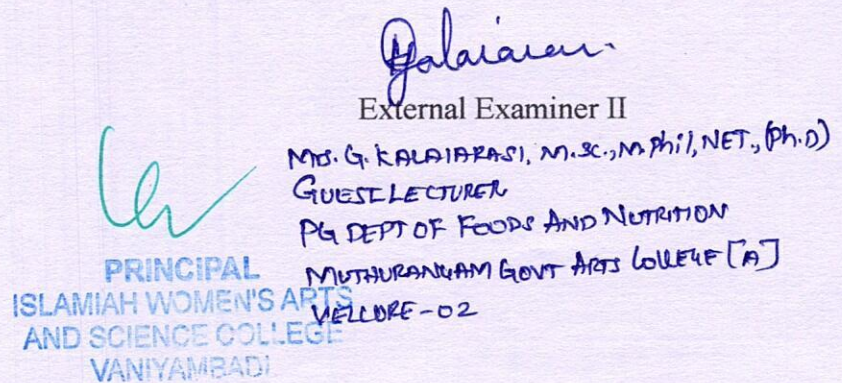 External Examiner II
Mrs. G. KALAIARASI, M.Sc., M.Phil, NET., (Ph.D)
GUEST LECTURER
PG DEPT OF FOODS AND NUTRITION
MUTHURANGAM GOVT ARTS COLLEGE [A]
VELLORE-02
PRINCIPAL
ISLAMIAH WOMEN'S ARTS
AND SCIENCE COLLEGE
VANIYAMBADI